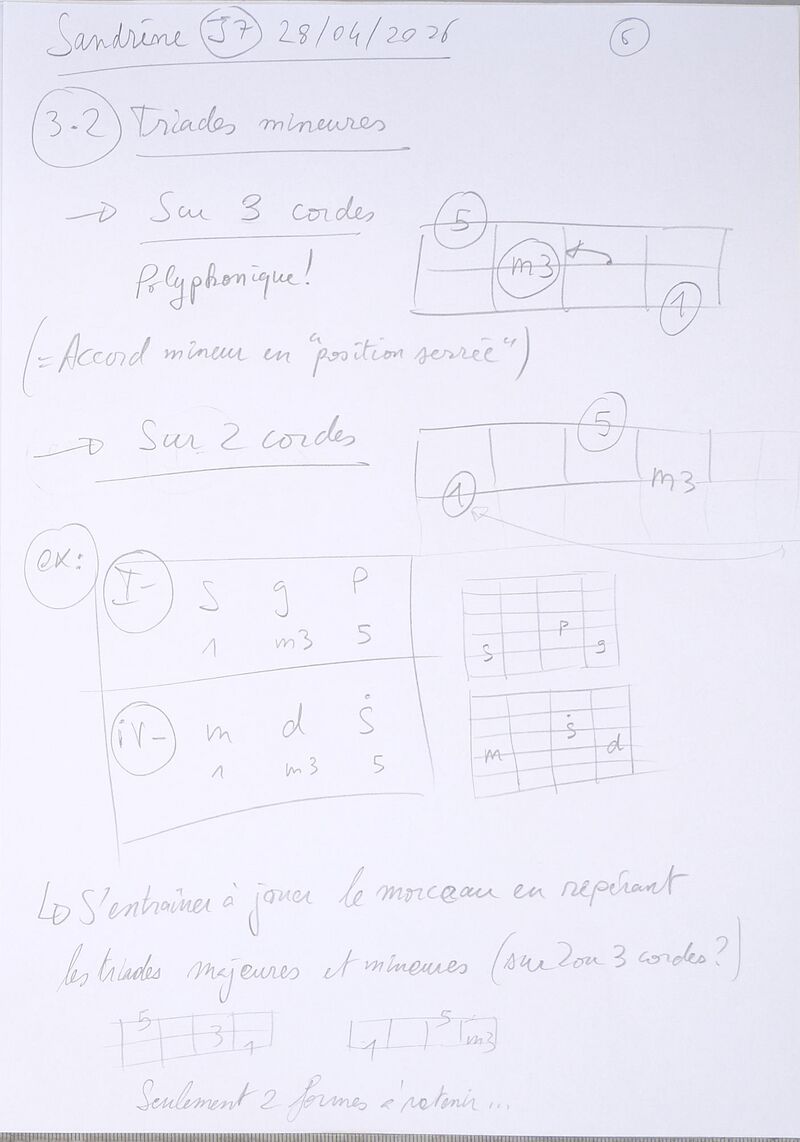 Sandrine J7 28/04/2026 6
3-2 Triades mineures
→ Sur 3 cordes
Polyphonique!
5
m3
1
(= Accord mineur en "position serrée")
→ Sur 2 cordes
5
1 m3
ex:
I- S g P
1 m3 5
S P g
iv- m d Ṡ
1 m3 5
m Ṡ d
↳ S'entraîner à jouer le morceau en repérant
les triades majeures et mineures (sur 2 ou 3 cordes?)
5 3 1
1 5 m3
Seulement 2 formes à retenir...